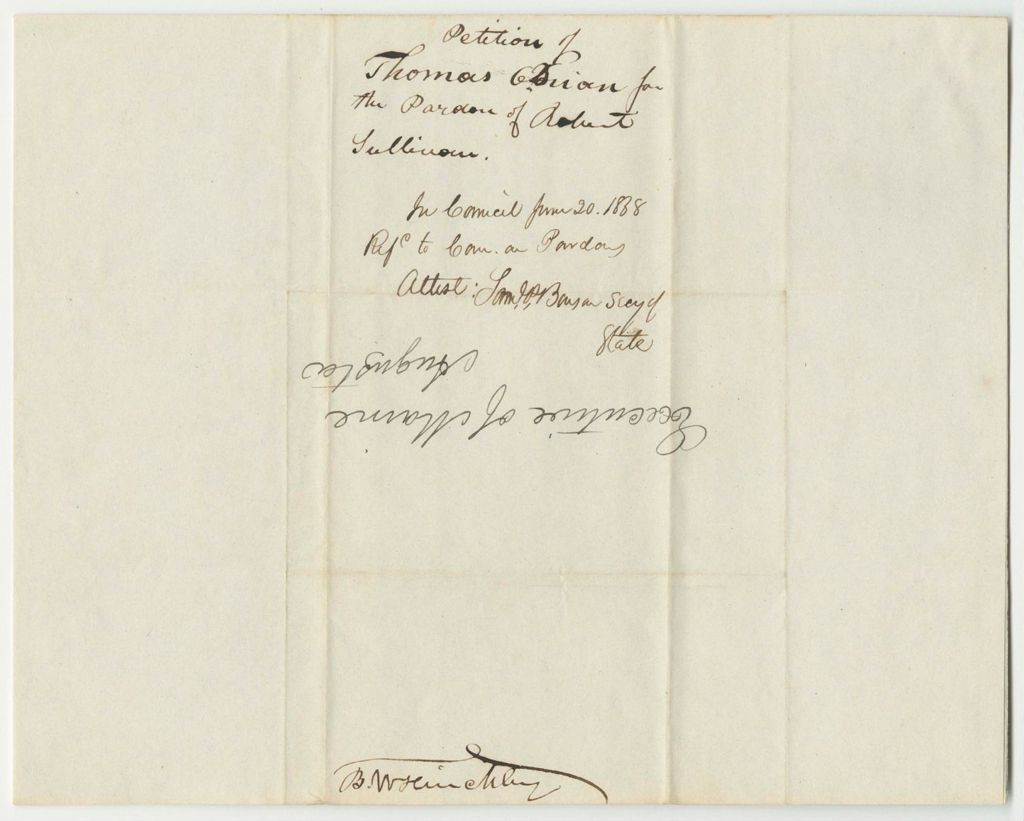 Petition of
Thomas OBrian for
the Pardon of Robert
Sullivan.
In Council June 20. 1838
Refd to Com. on Pardons
Attest: Saml P. Benson Secy of
State
Executive of Maine
Augusta
B. W. Hinckley